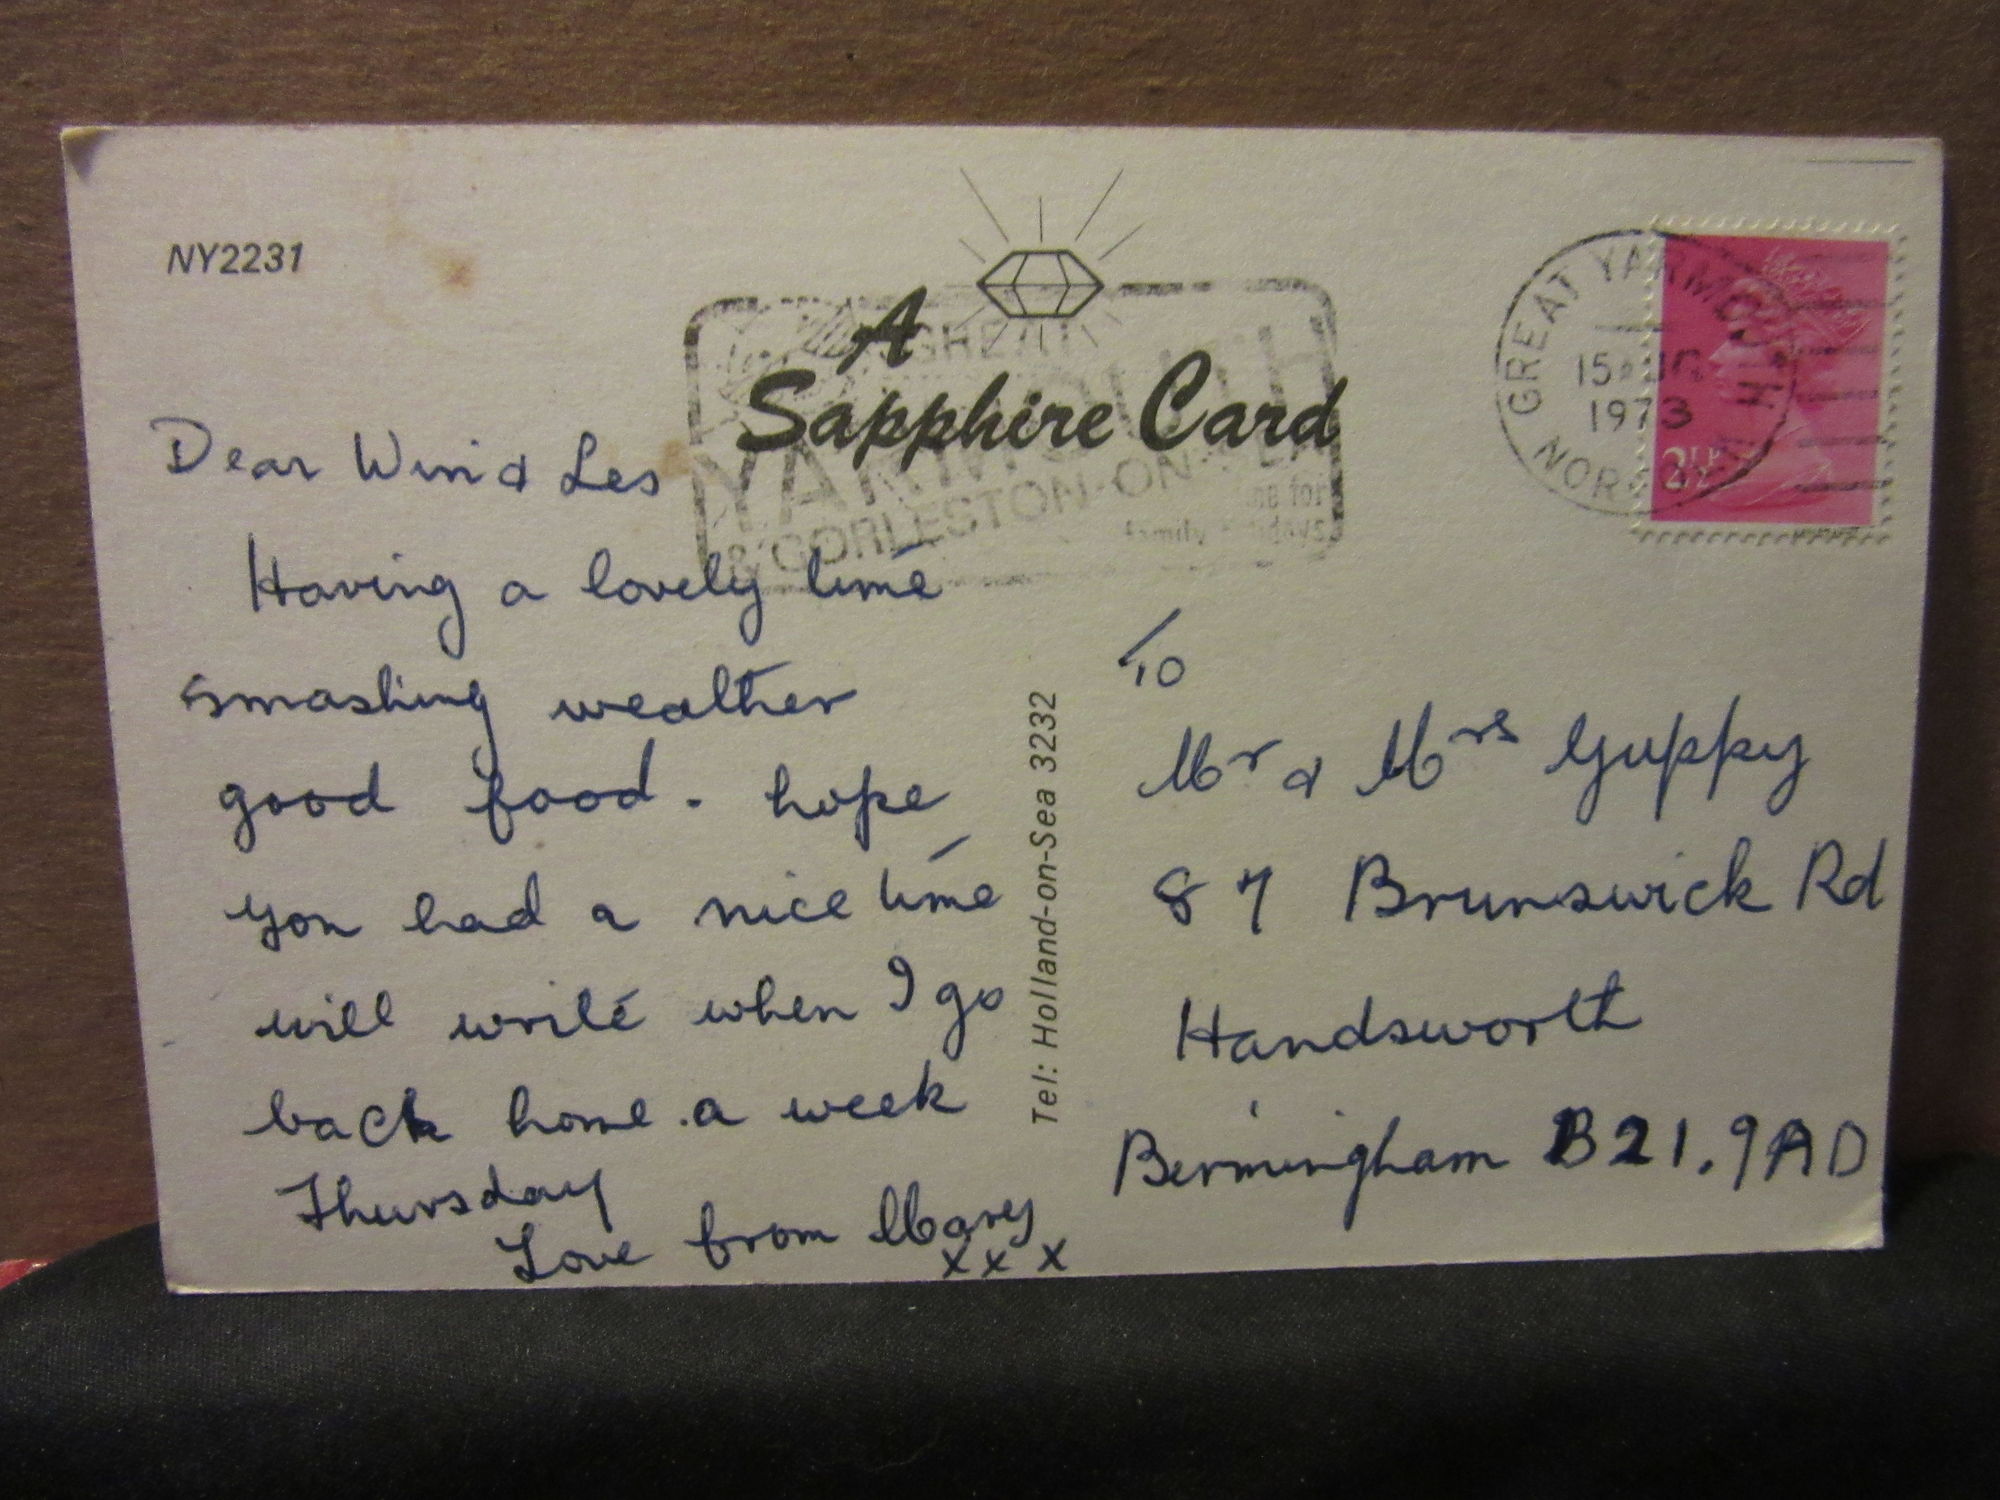 NY2231
A
Sapphire Card
GREAT
YARMOUTH
& GORLESTON-ON-SEA
for
family
GREAT YARMOUTH
15
1973
NOR
2½P
Dear Win & Les
Having a lovely time
smashing weather
good food. hope
you had a nice time
will write when I go
back home. a week
Thursday
Love from Mary
x x x
Tel: Holland-on-Sea 3232
To
Mr & Mrs Guppy
87 Brunswick Rd
Handsworth
Birmingham B21.9AD